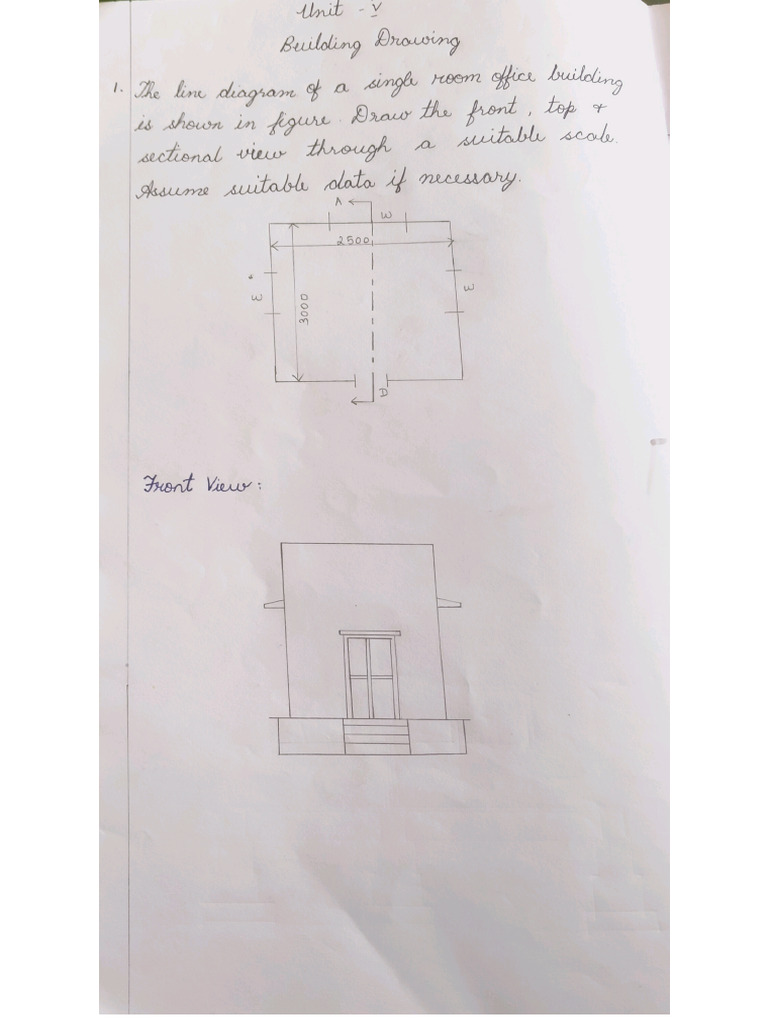 Unit - V
Building Drawing
1. The line diagram of a single room office building
is shown in figure. Draw the front, top &
sectional view through a suitable scale.
Assume suitable data if necessary.
A
W
2500
W
3000
W
D
Front View: